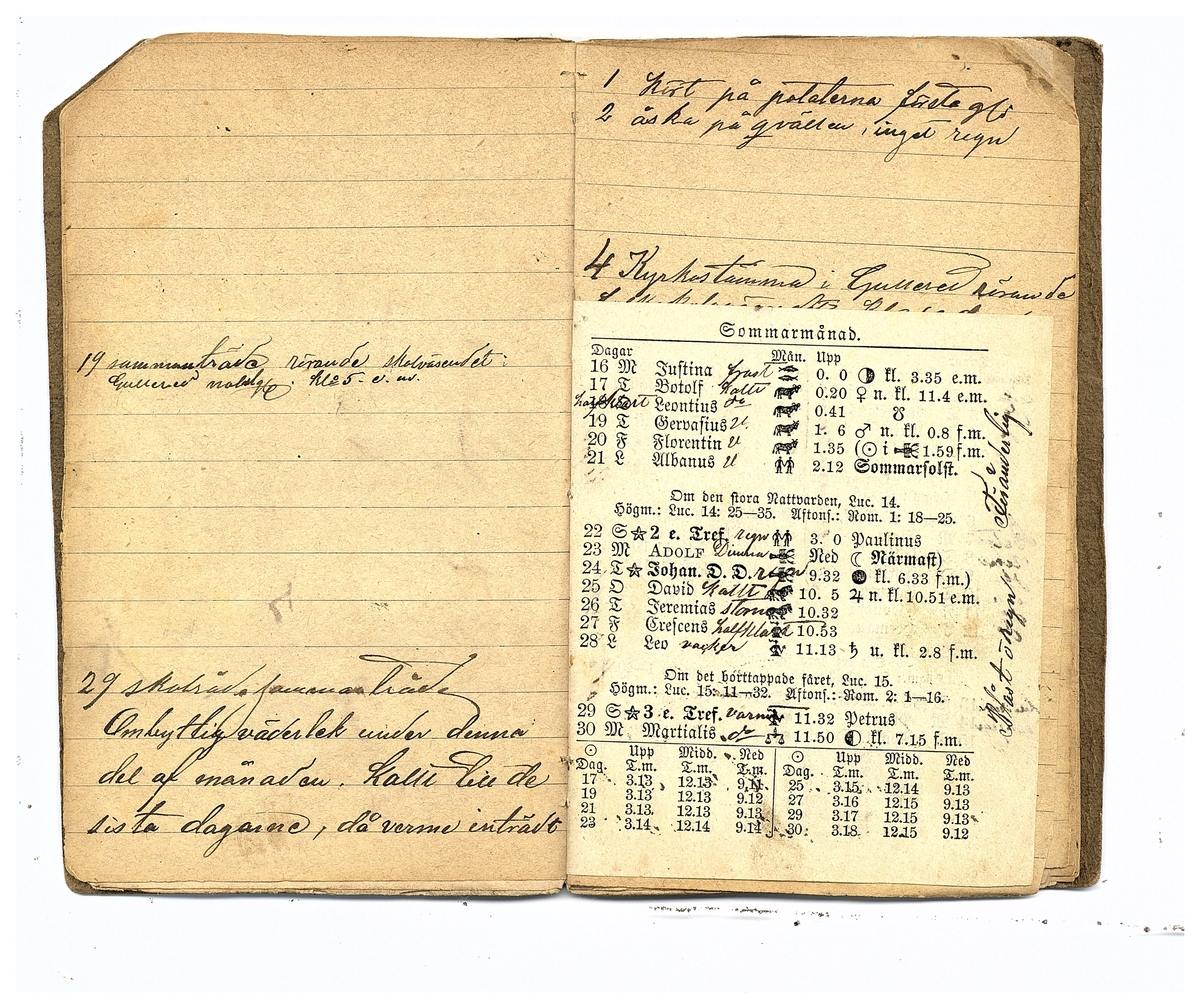 19 sammanträde rörande skolväsendet
Gullered kl 5 e. m.
29 skolråds sammanträde
Ombytlig väderlek under denna
del af månaden. Kallt till de
sista dagarne, då verme inträdt
1 kört på potaterna första
2 åska på qvällen, inget regn
4 Kyrkostämma i Gullered rörande
Sommarmånad.
Dagar Mån. Upp
16 M Justina frost 0. 0 ◑ kl. 3.35 e.m.
17 T Botolf kallt 0.20 ♀ n. kl. 11.4 e.m.
halfklart Leontius do 0.41 ☋
19 T Gervasius 1. 6 ♂ n. kl. 0.8 f.m.
20 F Florentin 1.35 (☉ i 1.59 f.m.
21 L Albanus 2.12 Sommarsolst.
Om den stora Nattvarden, Luc. 14.
Högm.: Luc. 14: 25—35. Aftons.: Rom. 1: 18—25.
22 S ☆ 2 e. Tref. regn 3. 0 Paulinus
23 M ADOLF Dimma Ned ☾ Närmast)
24 T ☆ Johan. D. D. regn 9.32 ● kl. 6.33 f.m.)
25 O David kallt 10. 5 ♃ n. kl. 10.51 e.m.
26 T Jeremias storm 10.32
27 F Crescens halfklart 10.53
28 L Leo vacker 11.13 ♄ u. kl. 2.8 f.m.
Om det borttappade fåret, Luc. 15.
Högm.: Luc. 15: 11—32. Aftons.: Rom. 2: 1—16.
29 S ☆ 3 e. Tref. varmt 11.32 Petrus
30 M Martialis do 11.50 ◐ kl. 7.15 f.m.
☉ Upp Midd. Ned ☉ Upp Midd. Ned
Dag. T.m. T.m. T.m. Dag. T.m. T.m. T.m.
17 3.13 12.13 9.11 25 3.15 12.14 9.13
19 3.13 12.13 9.12 27 3.16 12.15 9.13
21 3.13 12.13 9.13 29 3.17 12.15 9.13
23 3.14 12.14 9.14 30 3.18 12.15 9.12